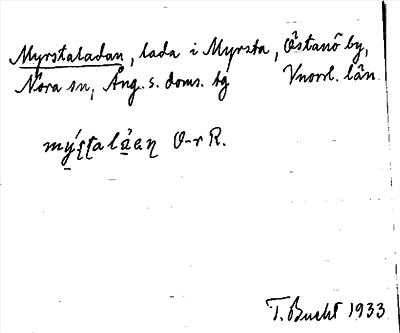 Myrstaladan, lada i Myrsta, Östanö by,
Nora sn, Ång. s. doms. tg Vnorrl. län
mýʂʈalàan O-r R.
T. Bucht 1933